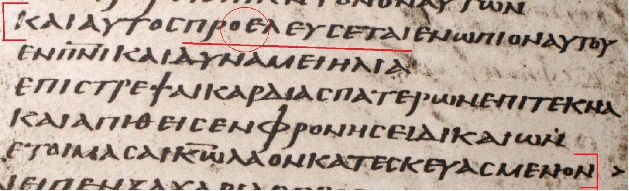 ΑΥΤΩΝ
ΚΑΙΑΥΤΟϹΠΡΟΕΛΕΥϹΕΤΑΙΕΝΩΠΙΟΝΑΥΤΟΥ
ΕΝΠ̅Ν̅Ι̅ΚΑΙΔΥΝΑΜΕΙΗΛΙΑ
ΕΠΙϹΤΡΕΨΑΙΚΑΡΔΙΑϹΠΑΤΕΡΩΝΕΠΙΤΕΚΝΑ
ΚΑΙΑΠΙΘΕΙϹΕΝΦΡΟΝΗϹΕΙΔΙΚΑΙΩΝ
ΕΤΟΙΜΑϹΑΙΚ̅Ω̅ΛΑΟΝΚΑΤΕϹΚΕΥΑϹΜΕΝΟΝ